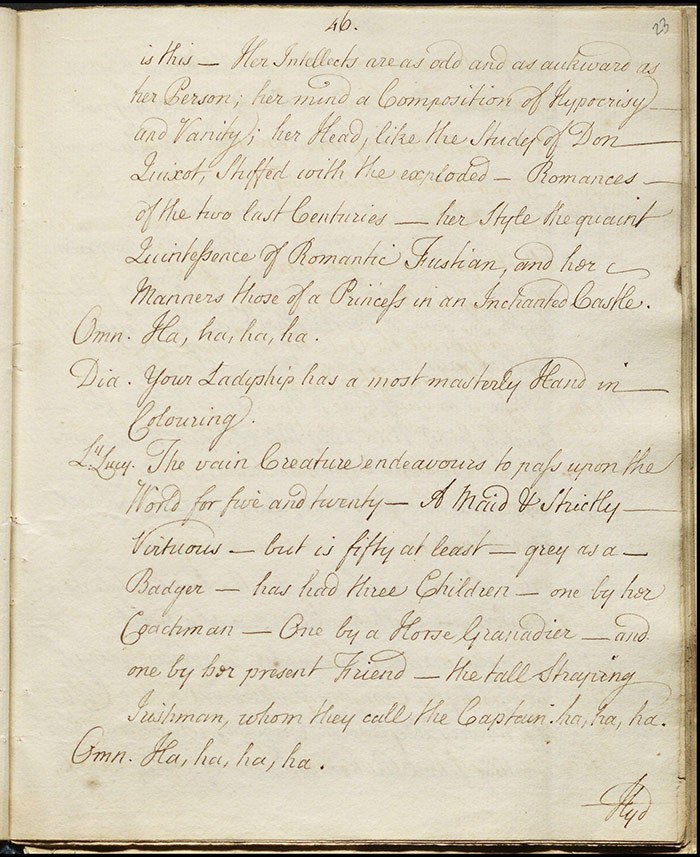 46.
23
is this — Her Intellects are as odd and as aukward as
her Person; her mind a Composition of Hypocrisy
and Vanity; her Head, like the Study of Don
Quixot, Stuffed with the exploded — Romances
of the two last Centuries — her Style the quaint
Quintessence of Romantic Fustian, and her
Manners those of a Princess in an Inchanted Castle.
Omn. Ha, ha, ha, ha.
Dia. Your Ladyship has a most masterly Hand in
Colouring.
Ly. Lucy. The vain Creature endeavours to pass upon the
World for five and twenty — A Maid & Strictly
Virtuous — but is fifty at least — grey as a
Badger — has had three Children — one by her
Coachman — One by a Horse Granadier — and
one by her present Friend — the tall Straping
Irishman, whom they call the Captain. ha, ha, ha.
Omn. Ha, ha, ha, ha.
Hyd